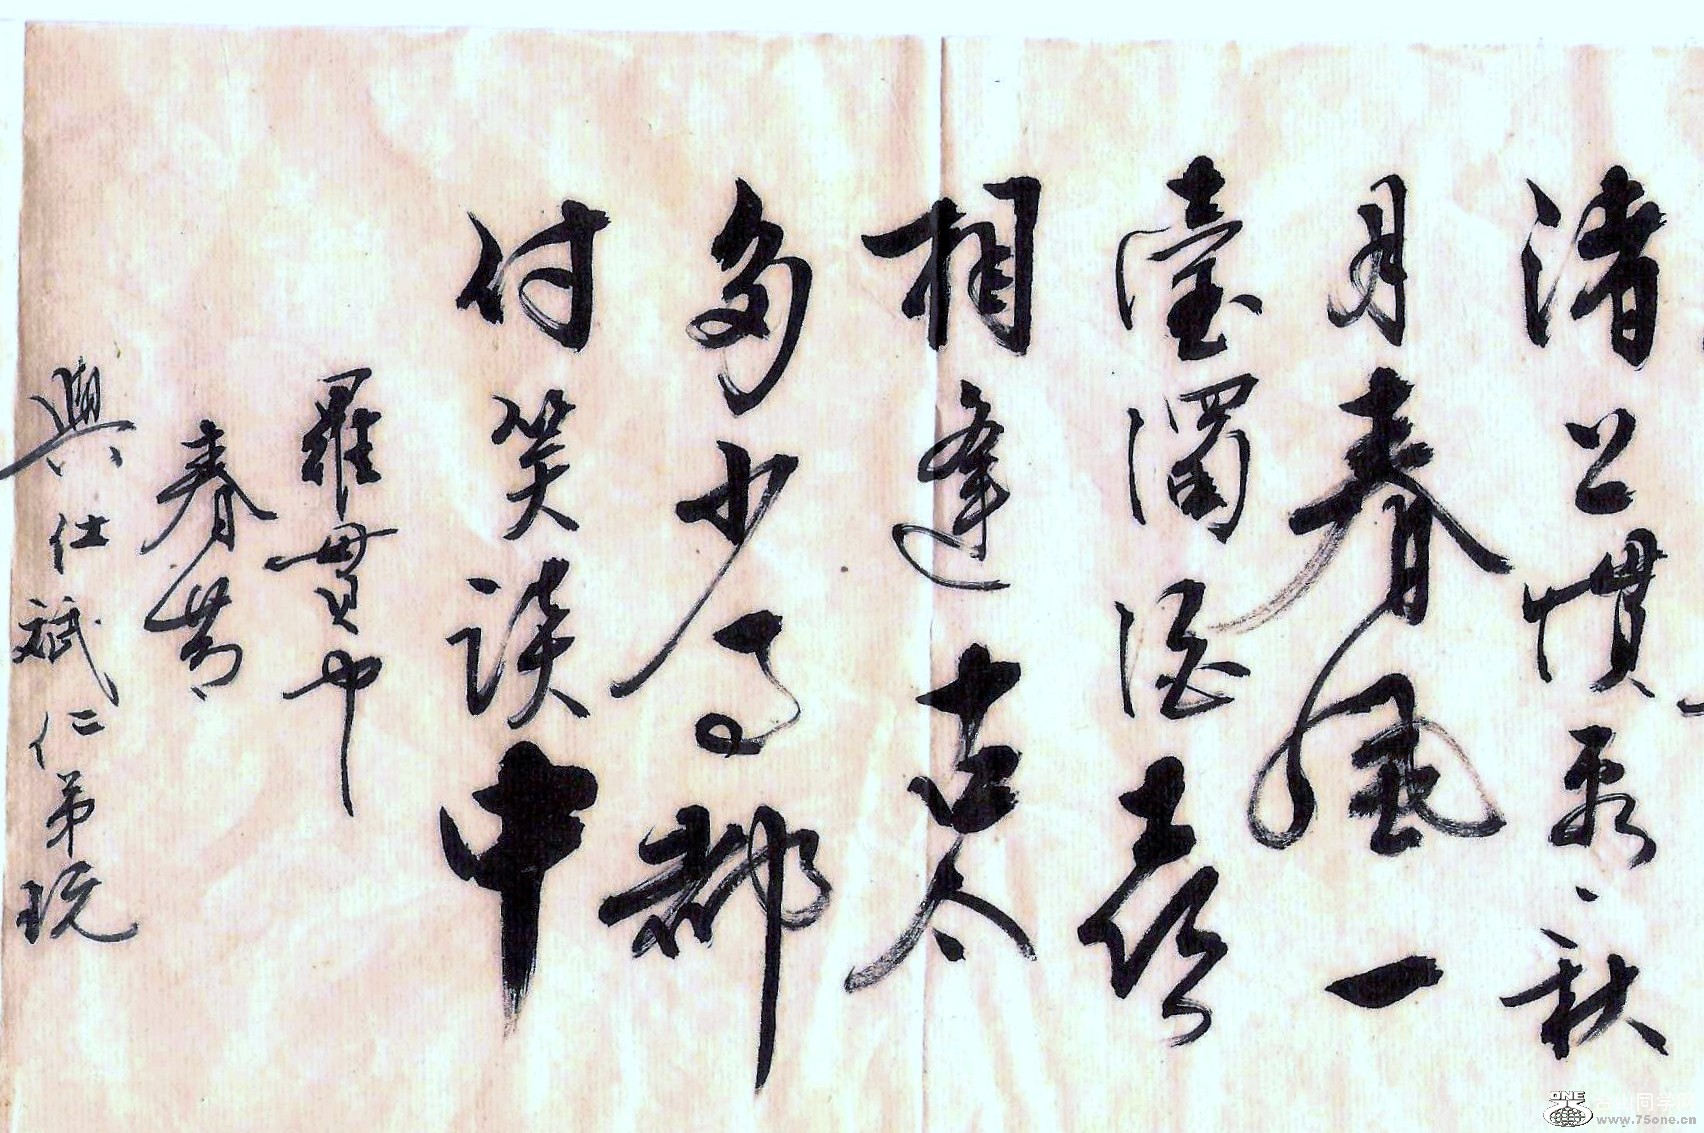 渚上慣看秋
月春風一
壺濁酒喜
相逢古今
多少事都
付笑談中
羅貫中
春
與仕斌仁弟玩
ONE
同学
www.75one.cn